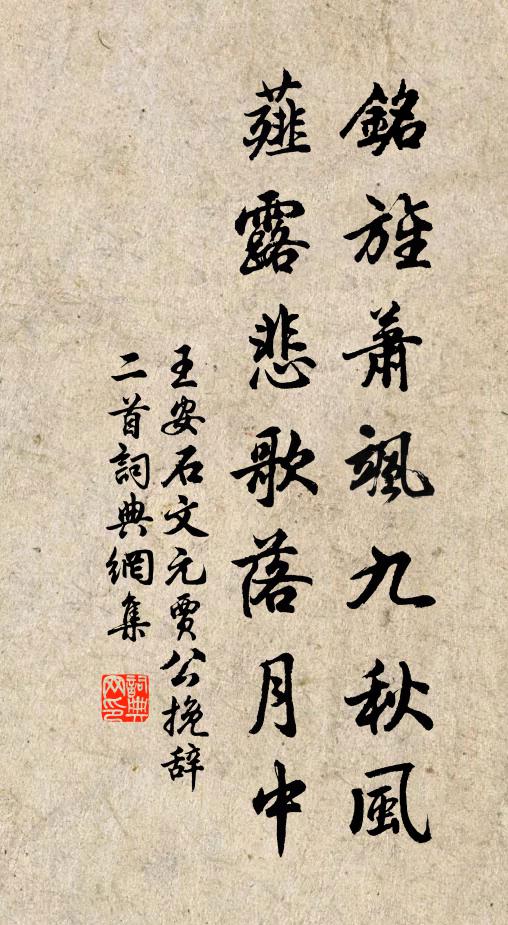 銘旌蕭颯九秋風
薤露悲歌落月中
王安石文元賈公挽辞
二首詞典網集
詞典
网印